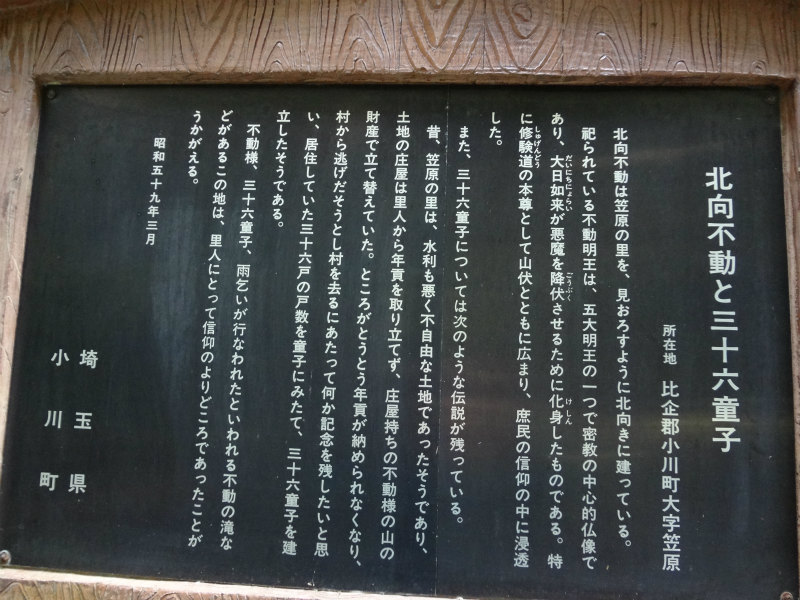 北向不動と三十六童子
所在地　比企郡小川町大字笠原
北向不動は笠原の里を、見おろすように北向きに建っている。
祀られている不動明王は、五大明王の一つで密教の中心的仏像で
あり、大日如来が悪魔を降伏させるために化身したものである。特
だいにちにょらい
ごうぶく
けしん
に修験道の本尊として山伏とともに広まり、庶民の信仰の中に浸透
しゅげんどう
した。
また、三十六童子については次のような伝説が残っている。
昔、笠原の里は、水利も悪く不自由な土地であったそうであり、
土地の庄屋は里人から年貢を取り立てず、庄屋持ちの不動様の山の
財産で立て替えていた。ところがとうとう年貢が納められなくなり、
村から逃げだそうとし村を去るにあたって何か記念を残したいと思
い、居住していた三十六戸の戸数を童子にみたて、三十六童子を建
立したそうである。
不動様、三十六童子、雨乞いが行なわれたといわれる不動の滝な
どがあるこの地は、里人にとって信仰のよりどころであったことが
うかがえる。
昭和五十九年三月
埼玉県
小川町